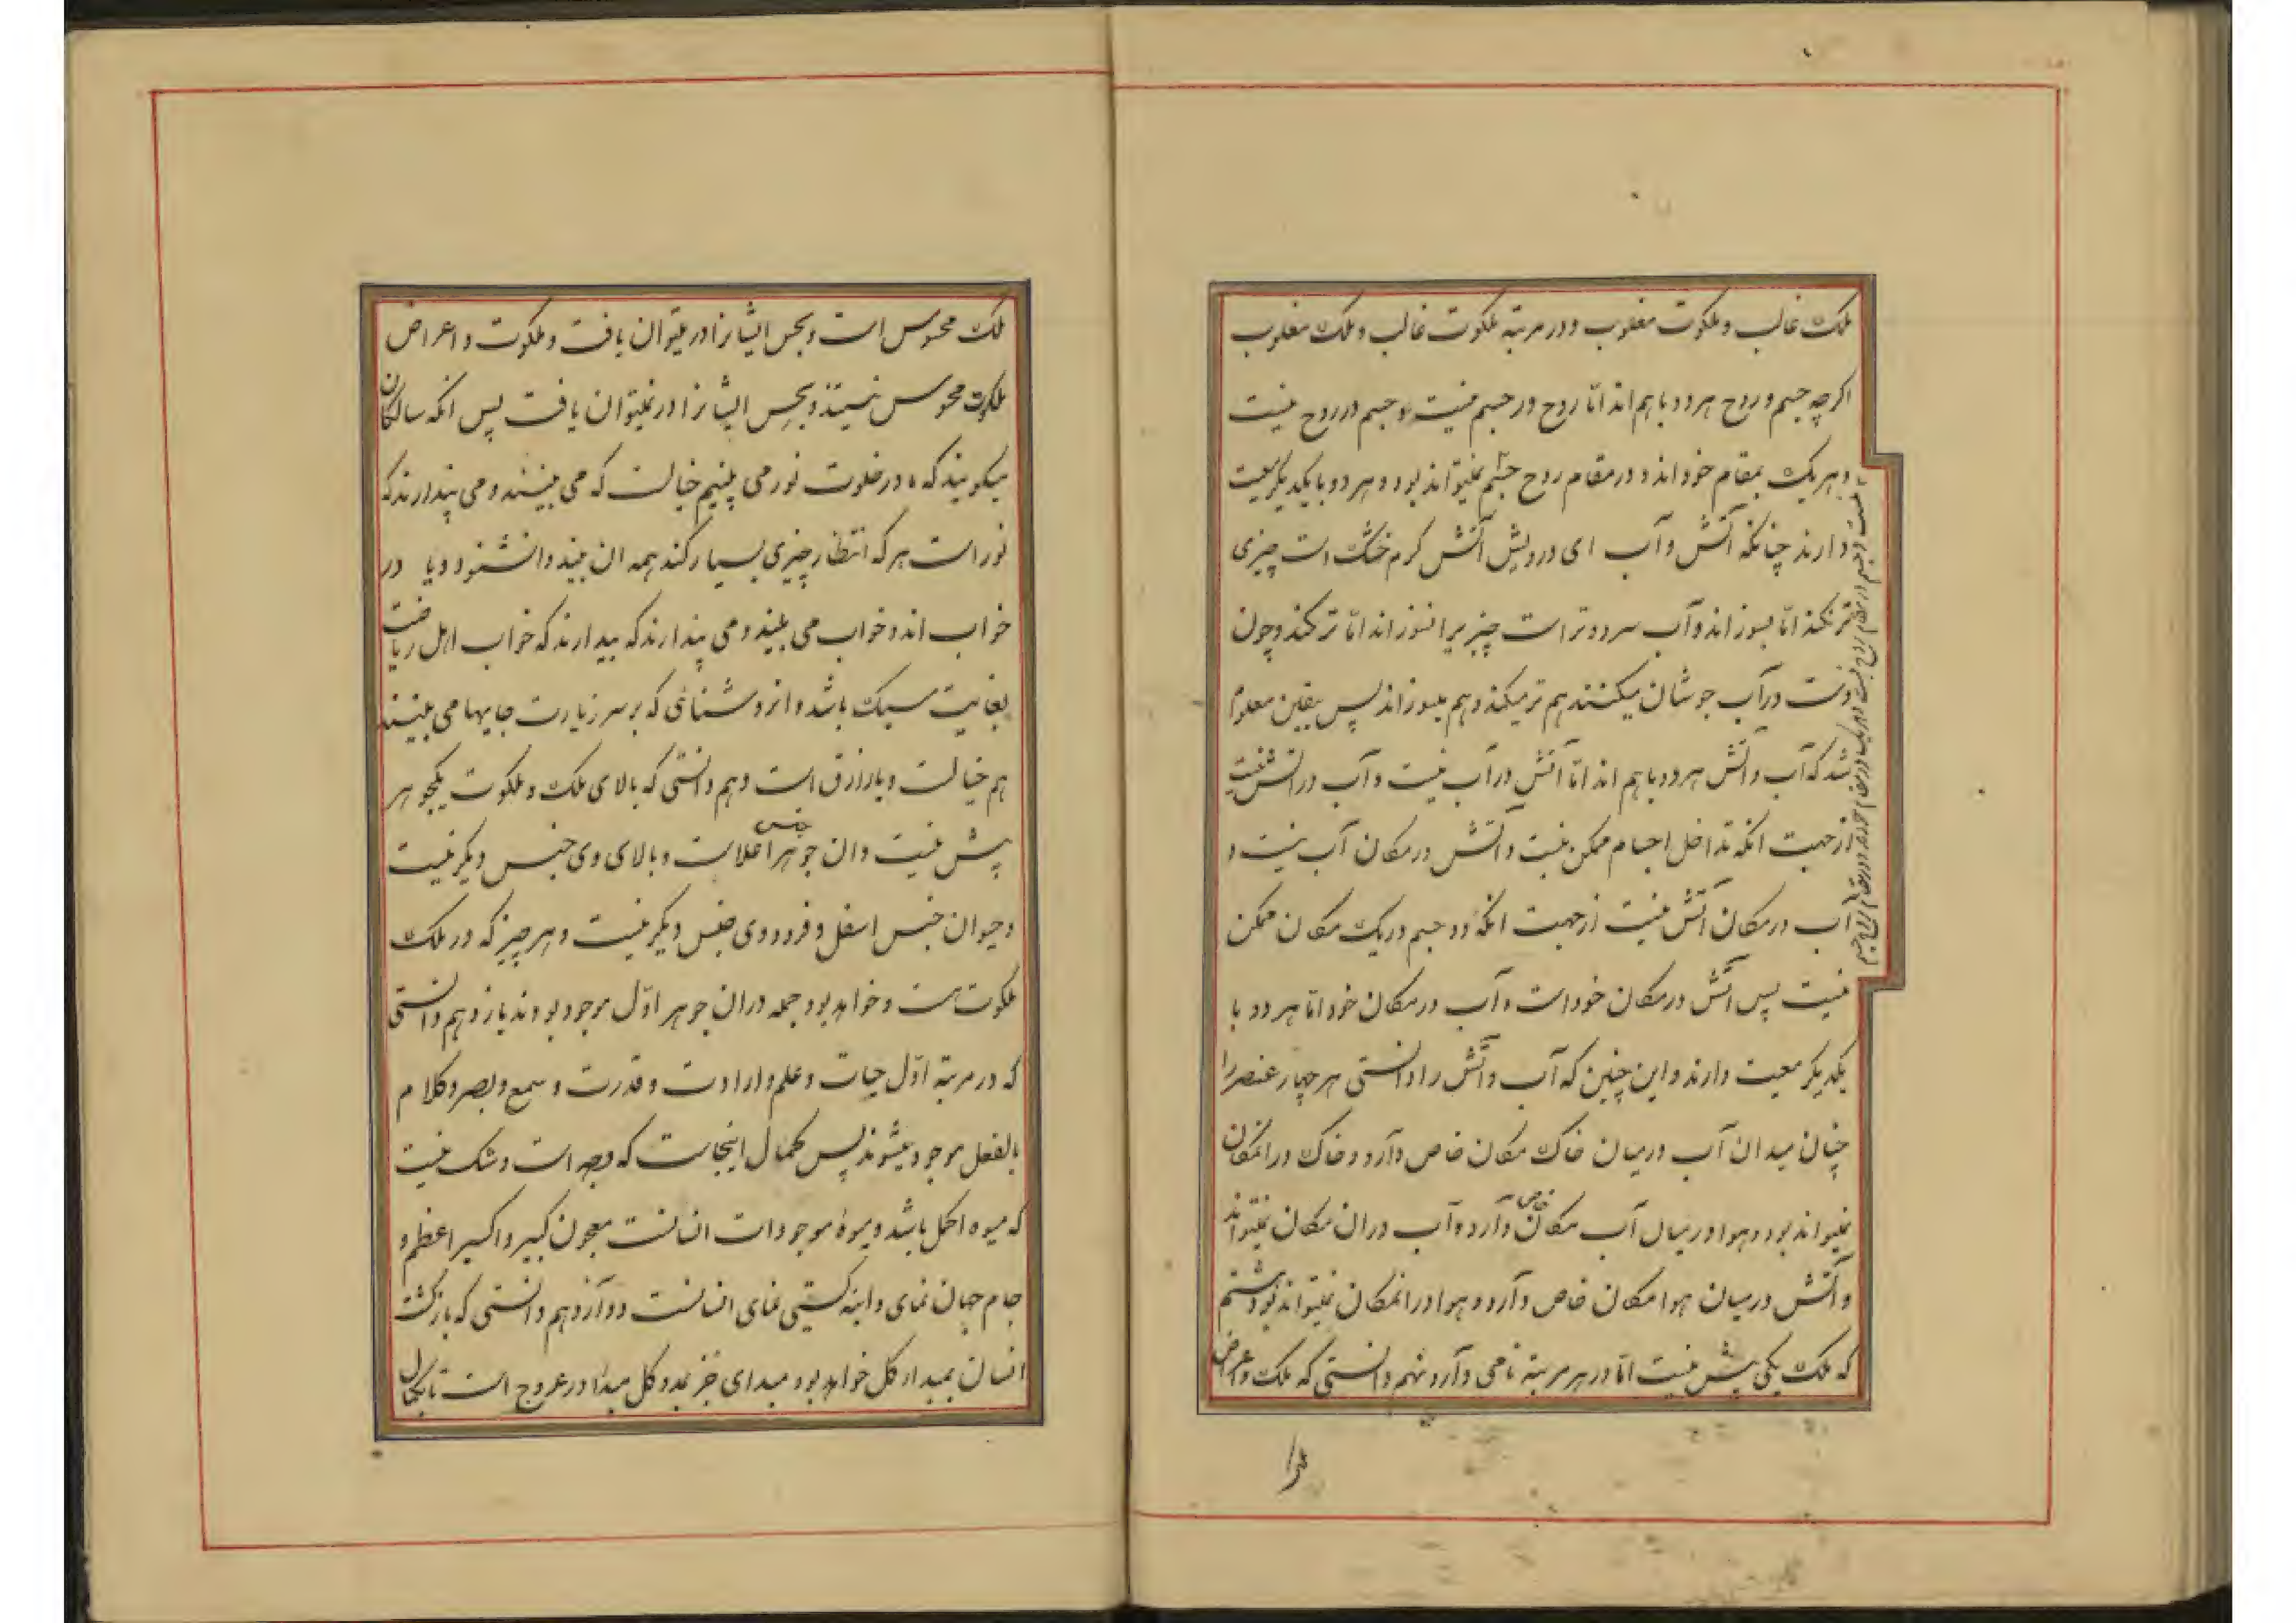 ملک غالب و ملکوت مغلوب و در مرتبه ملکوت غالب و ملک مغلوب
اکرچه جسم و روح هر دو باهم اند اما روح در جسم نیست و جسم در روح نیست
و هر یک بمقام خوداند و در مقام روح جسم نمیتواند بود و هر دو با یکدیکر معیت
دارند چنانکه آتش و آب ای درویش آتش کرم خشک است چیزی
تر نکند اما بسوزاند و آب سرد و تر است چیزیرا نسوزاند اما تر کند و چون
دست در آب جوشان میکنند هم تر میکند و هم میسوزاند پس بیقین معلوم
شد که آب و آتش هر دو باهم اند اما آتش در آب نیست و آب در آتش نیست
از جهت انکه تداخل اجسام ممکن نیست و آتش در مکان آب نیست و
آب در مکان آتش نیست از جهت انکه دو جسم در یک مکان ممکن
نیست پس آتش در مکان خود است و آب در مکان خود اما هر دو با
یکدیکر معیت دارند و این چنین که آب و آتش را دانستی هر چهار عنصر را
چنان میدان آب در میان خاک مکان خاص دارد و خاک در انمکان
نمیتواند بود و هوا در میان آب مکان خاص دارد و آب در ان مکان نمیتواند
و آتش در میان هوا مکان خاص دارد و هوا در انمکان نمیتواند بود هشتم
که ملک یکی بیش نیست اما در هر مرتبه نامی دارد نهم دانستی که ملک و اعراض
ملک محسوس است و بحس ایشانرا در میتوان یافت و ملکوت و اعراض
ملکوت محسوس نیستند و بحس ایشانرا در نمیتوان یافت پس انکه سالکان
میکویند که ما در خلوت نور می بینیم خیالست که می بینند و می پندارند که
نور است هر که انتظار چیزی بسیار کند همه ان بیند و ان شنود و یا در
خواب اند و خواب می بینند و می پندارند که بیدارند که خواب اهل ریاضت
بغایت سبک باشد و ان روشنائی که بر سر زیارت جایها می بینند
هم خیالست و یا رازق است دهم دانستی که بالای ملک و ملکوت یکجوهر
بیش نیست و ان جوهر جنس اعلاست و بالای وی جنس دیکر نیست
و حیوان جنس اسفل و فرود وی جنس دیکر نیست و هر چیز که در ملک
ملکوت هست و خواهد بود جمله در ان جوهر اول موجود بودند یازدهم دانستی
که در مرتبه اول حیات و علم و ارادت و قدرت و سمع و بصر و کلام
بالفعل موجود نمیشوند پس کمال اینجاست که میوه است و شک نیست
که میوه اکمل باشد و میوه موجودات انسانست معجون کبیر و اکسیر اعظم و
جام جهان نمای و اینه کیتی نمای انسانست دوازدهم دانستی که بازکشت
انسان بمبداء کل خواهد بود